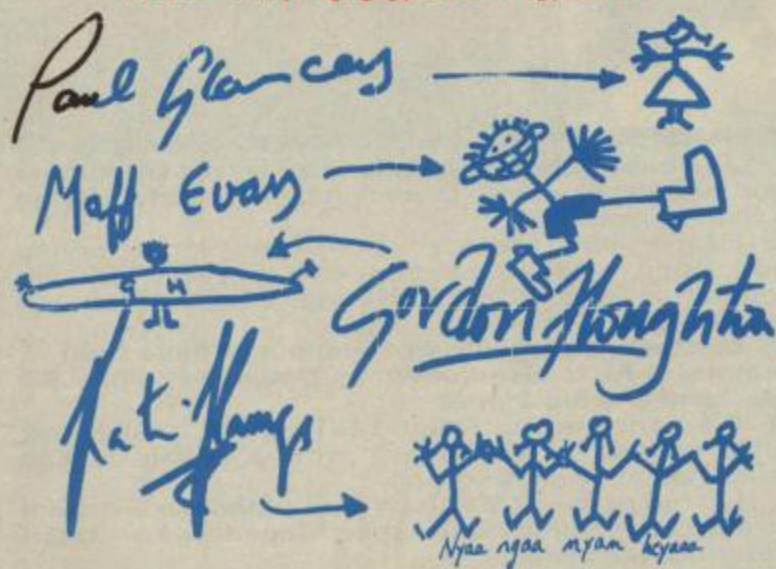 Paul Glancey
Maff Evans
G H
Gordon Houghton
Kati Hamza
Nyaa ngaa myam heyaaa